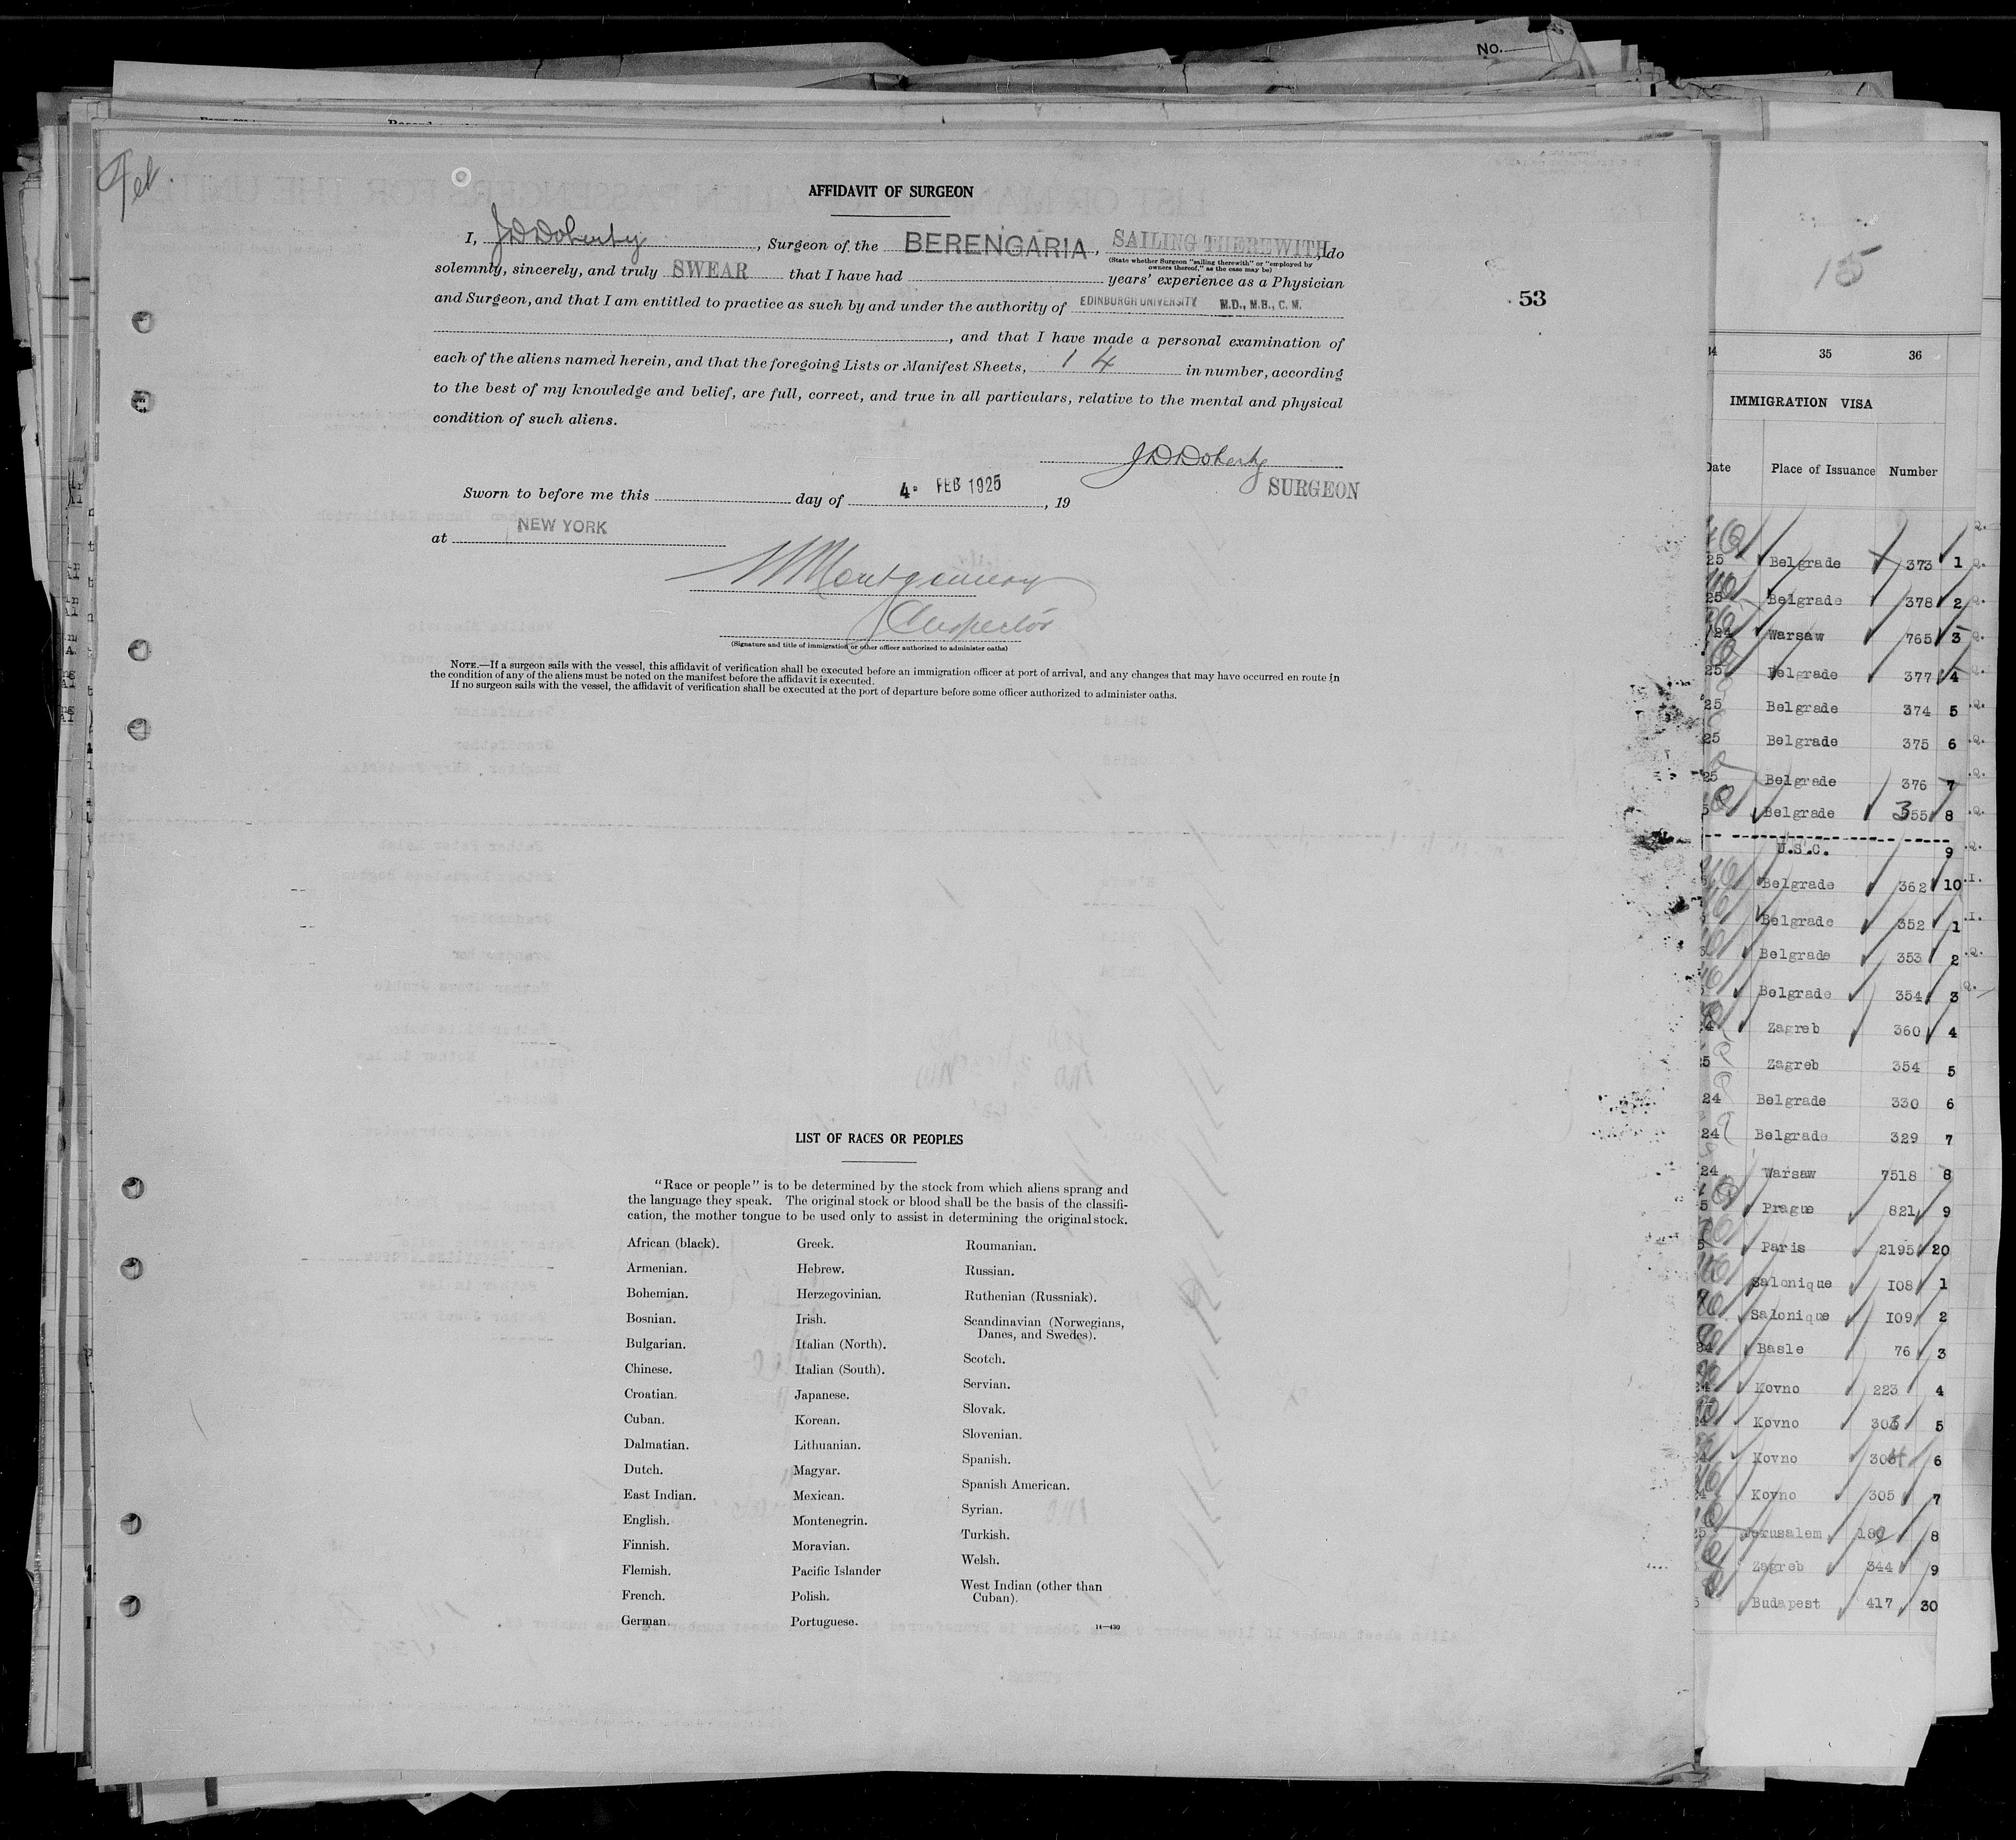 No.
AFFIDAVIT OF SURGEON
I, J D Doherty, Surgeon of the BERENGARIA, SAILING THEREWITH, do
(State whether Surgeon "sailing therewith" or "employed by
owners thereof," as the case may be)
solemnly, sincerely, and truly SWEAR that I have had years' experience as a Physician
and Surgeon, and that I am entitled to practice as such by and under the authority of EDINBURGH UNIVERSITY M.D., M.B., C.M.
, and that I have made a personal examination of
each of the aliens named herein, and that the foregoing Lists or Manifest Sheets, 14 in number, according
to the best of my knowledge and belief, are full, correct, and true in all particulars, relative to the mental and physical
condition of such aliens.
J D Doherty
SURGEON
Sworn to before me this day of 4 FEB 1925, 19
at NEW YORK
Montgomery
Inspector
(Signature and title of immigration or other officer authorized to administer oaths)
NOTE.—If a surgeon sails with the vessel, this affidavit of verification shall be executed before an immigration officer at port of arrival, and any changes that may have occurred en route in
the condition of any of the aliens must be noted on the manifest before the affidavit is executed.
If no surgeon sails with the vessel, the affidavit of verification shall be executed at the port of departure before some officer authorized to administer oaths.
53
LIST OF RACES OR PEOPLES
"Race or people" is to be determined by the stock from which aliens sprang and
the language they speak. The original stock or blood shall be the basis of the classifi-
cation, the mother tongue to be used only to assist in determining the original stock.
African (black).
Armenian.
Bohemian.
Bosnian.
Bulgarian.
Chinese.
Croatian.
Cuban.
Dalmatian.
Dutch.
East Indian.
English.
Finnish.
Flemish.
French.
German
Greek.
Hebrew.
Herzegovinian.
Irish.
Italian (North).
Italian (South).
Japanese.
Korean.
Lithuanian.
Magyar.
Mexican.
Montenegrin.
Moravian.
Pacific Islander
Polish.
Portuguese.
Roumanian.
Russian.
Ruthenian (Russniak).
Scandinavian (Norwegians,
Danes, and Swedes).
Scotch.
Servian.
Slovak.
Slovenian.
Spanish.
Spanish American.
Syrian.
Turkish.
Welsh.
West Indian (other than
Cuban).
14—430
15
35 36
IMMIGRATION VISA
Date Place of Issuance Number
25 Belgrade 373 1
25 Belgrade 378 2
24 Warsaw 765 3
25 Belgrade 377 4
25 Belgrade 374 5
25 Belgrade 375 6
25 Belgrade 376 7
5 Belgrade 355 8
U.S.C. 9
Belgrade 362 10
Belgrade 352 1
Belgrade 353 2
Belgrade 354 3
4 Zagreb 360 4
25 Zagreb 354 5
24 Belgrade 330 6
24 Belgrade 329 7
24 Warsaw 7518 8
5 Prague 821 9
5 Paris 2195 20
Salonique 108 1
Salonique 109 2
24 Basle 76 3
24 Kovno 223 4
24 Kovno 303 5
24 Kovno 304 6
24 Kovno 305 7
25 Jerusalem 182 8
Zagreb 344 9
5 Budapest 417 30